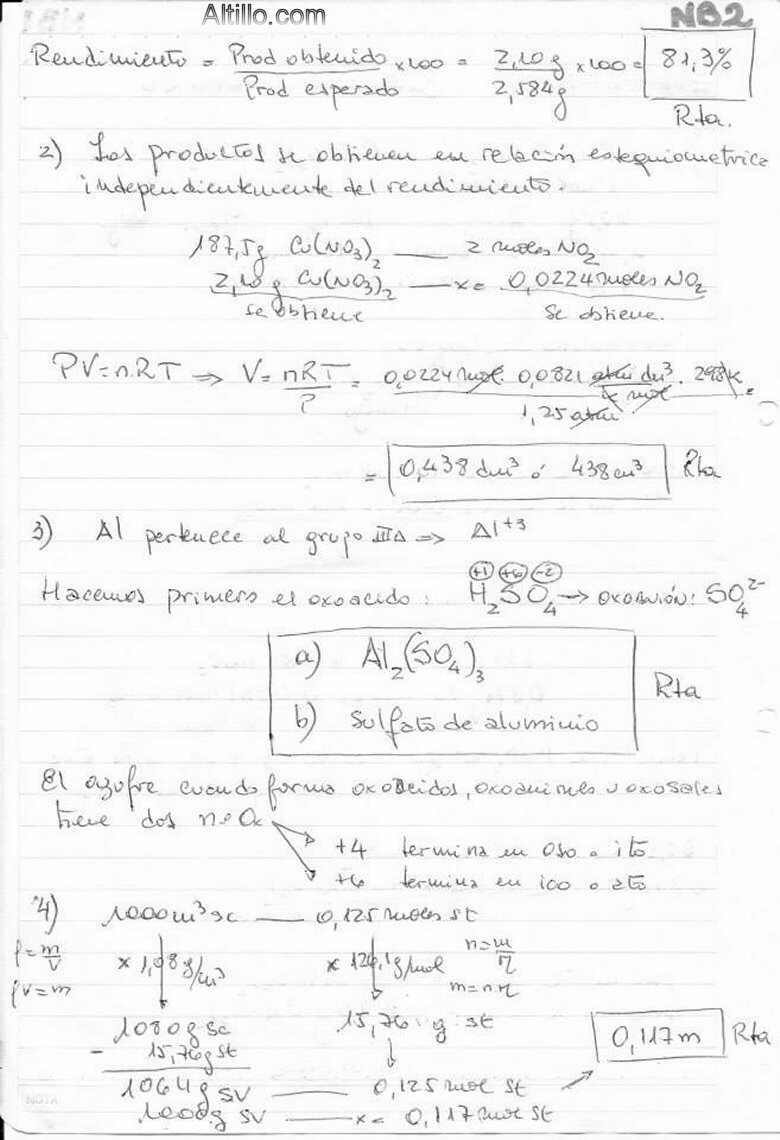 Altillo.com
NB2
Rendimiento = Prod obtenido / Prod esperado x 100 = 2,10 g / 2,584 g x 100 = 81,3%
Rta.
2) Los productos se obtienen en relación estequiometrica
independientemente del rendimiento.
187,5 g Cu(NO3)2 —— 2 moles NO2
2,10 g Cu(NO3)2 —— x = 0,0224 moles NO2
se obtiene se obtiene.
PV = n.RT ⇒ V = nRT / P = 0,0224 mol. 0,0821 atm dm³ / K mol . 298 K / 1,25 atm =
= 0,438 dm³ ó 438 cm³ Rta
3) Al pertenece al grupo IIIA ⇒ Al+3
+1 +6 -2
Hacemos primero el oxoacido: H2SO4 → oxoanión: SO4 2-
a) Al2(SO4)3
Rta
b) Sulfato de aluminio
El azufre cuando forma oxoacidos, oxoaniones u oxosales
tiene dos nºOx
+4 termina en oso o ito
+6 termina en ico o ato
4) 1000 cm³ sc —— 0,125 moles st
ρ = m/V x 1,08 g/cm³ x 126,1 g/mol n = m/M
ρV = m m = n.M
1080 g sc 15,76 g st 0,117 m Rta
- 15,76 g st
1064 g sv —— 0,125 mol st
1000 g sv —— x = 0,117 mol st